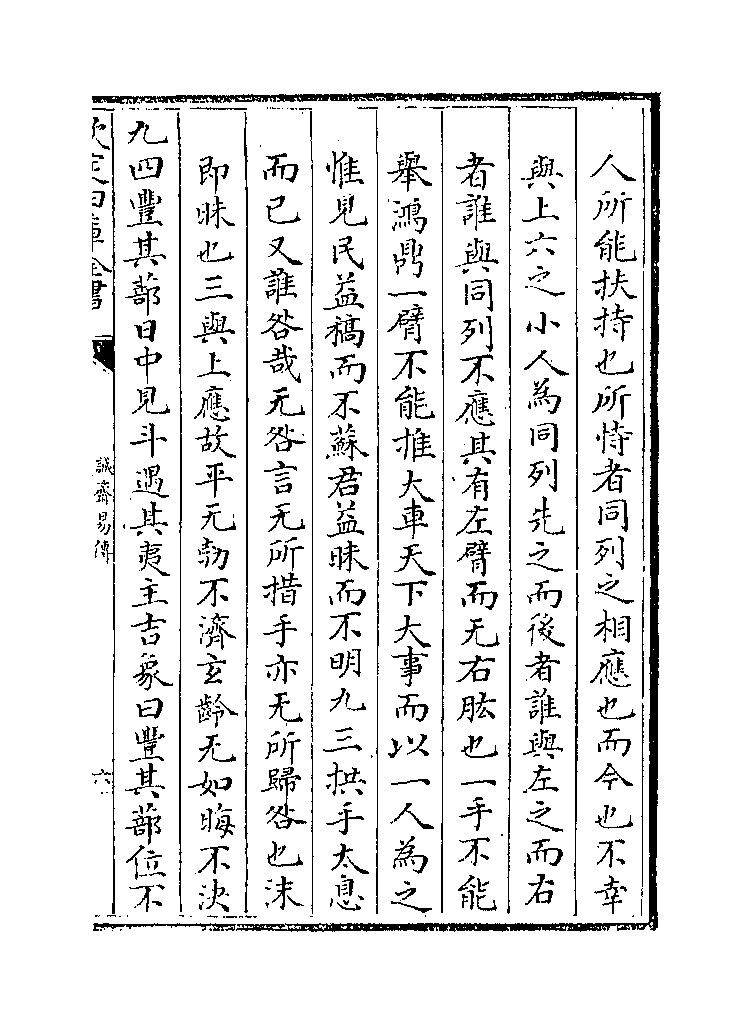 人所能扶持也所恃者同列之相應也而今也不幸
與上六之小人為同列先之而後者誰與左之而右
者誰與同列不應其有左臂而无右肱也一手不能
舉鴻鼎一臂不能推大車天下大事而以一人為之
惟見民益稿而不蘇君益昧而不明九三拱手太息
而已又誰咎哉无咎言无所措手亦无所歸咎也沬
即昧也三與上應故平无勃不濟玄齡无如晦不決
九四豐其蔀日中見斗遇其夷主吉象曰豐其蔀位不
欽定四庫全書
誠齋易傳
六